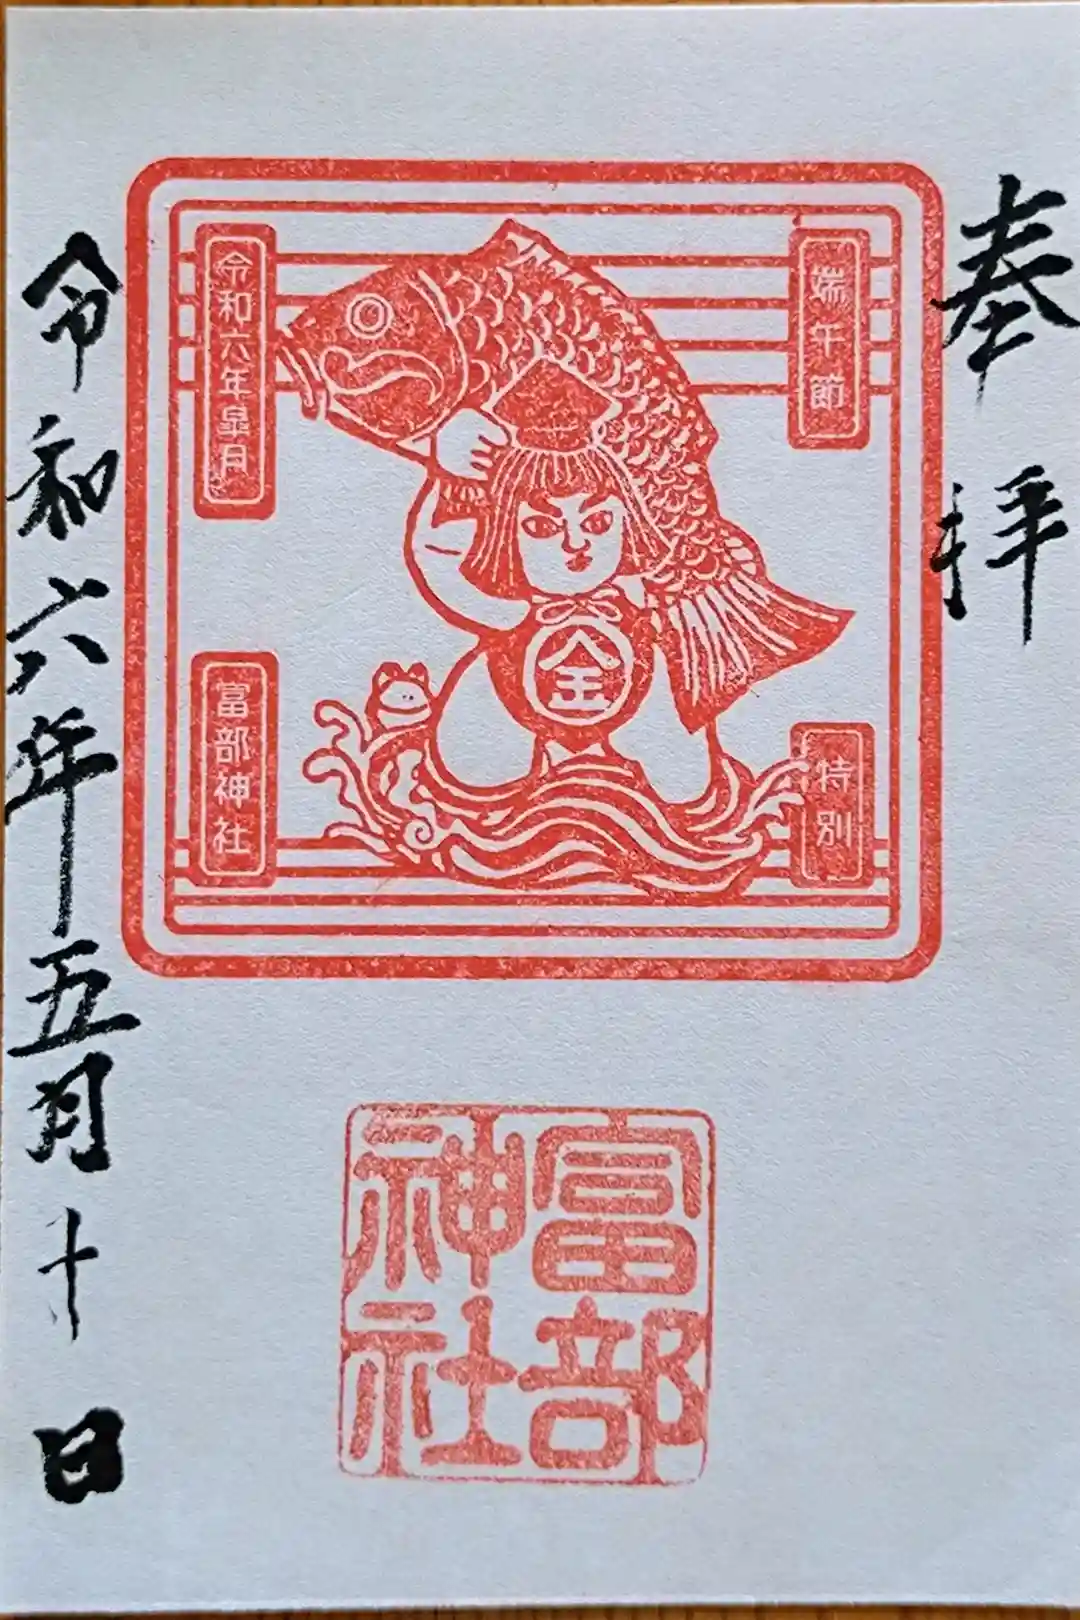 奉拝
端午節
特別
令和六年皐月
富部神社
金
富部
神社
令和六年五月十日